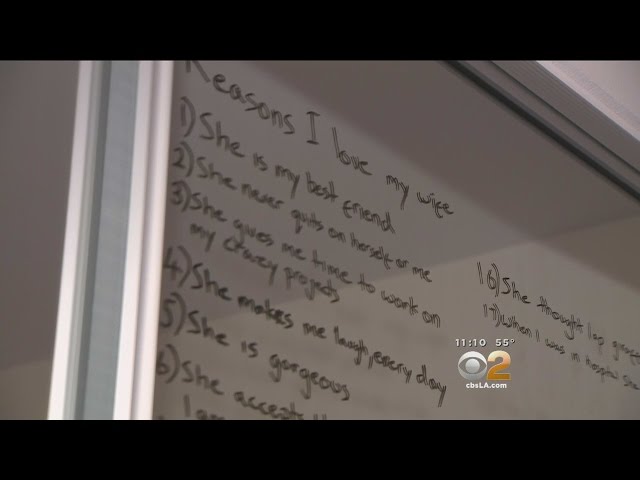 Reasons I love my wife
1) She is my best friend
2) She never quits on herself or me
3) She gives me time to work on
my crazy projects
4) She makes me laugh, every day
5) She is gorgeous
6) She accepts
I am
16) She thought
17) When I was in hospital
11:10 55°
2
CBS LA
cbsLA.com